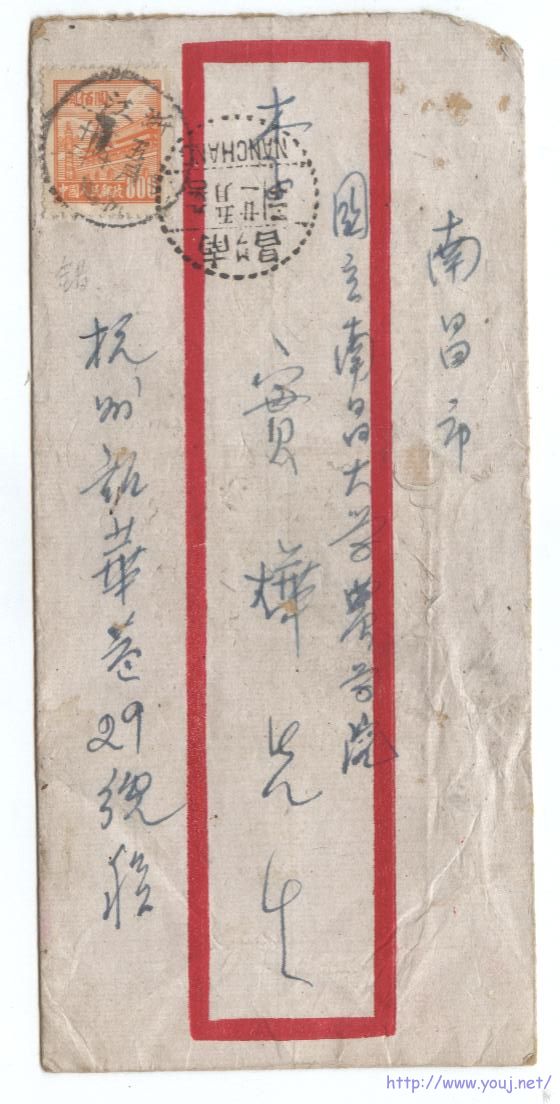 南昌市
国立南昌大学農学院
李寶樺先生
杭州新華巷29號殷
中國人民郵政
800
NANCHANG
南昌
http://www.youj.net/